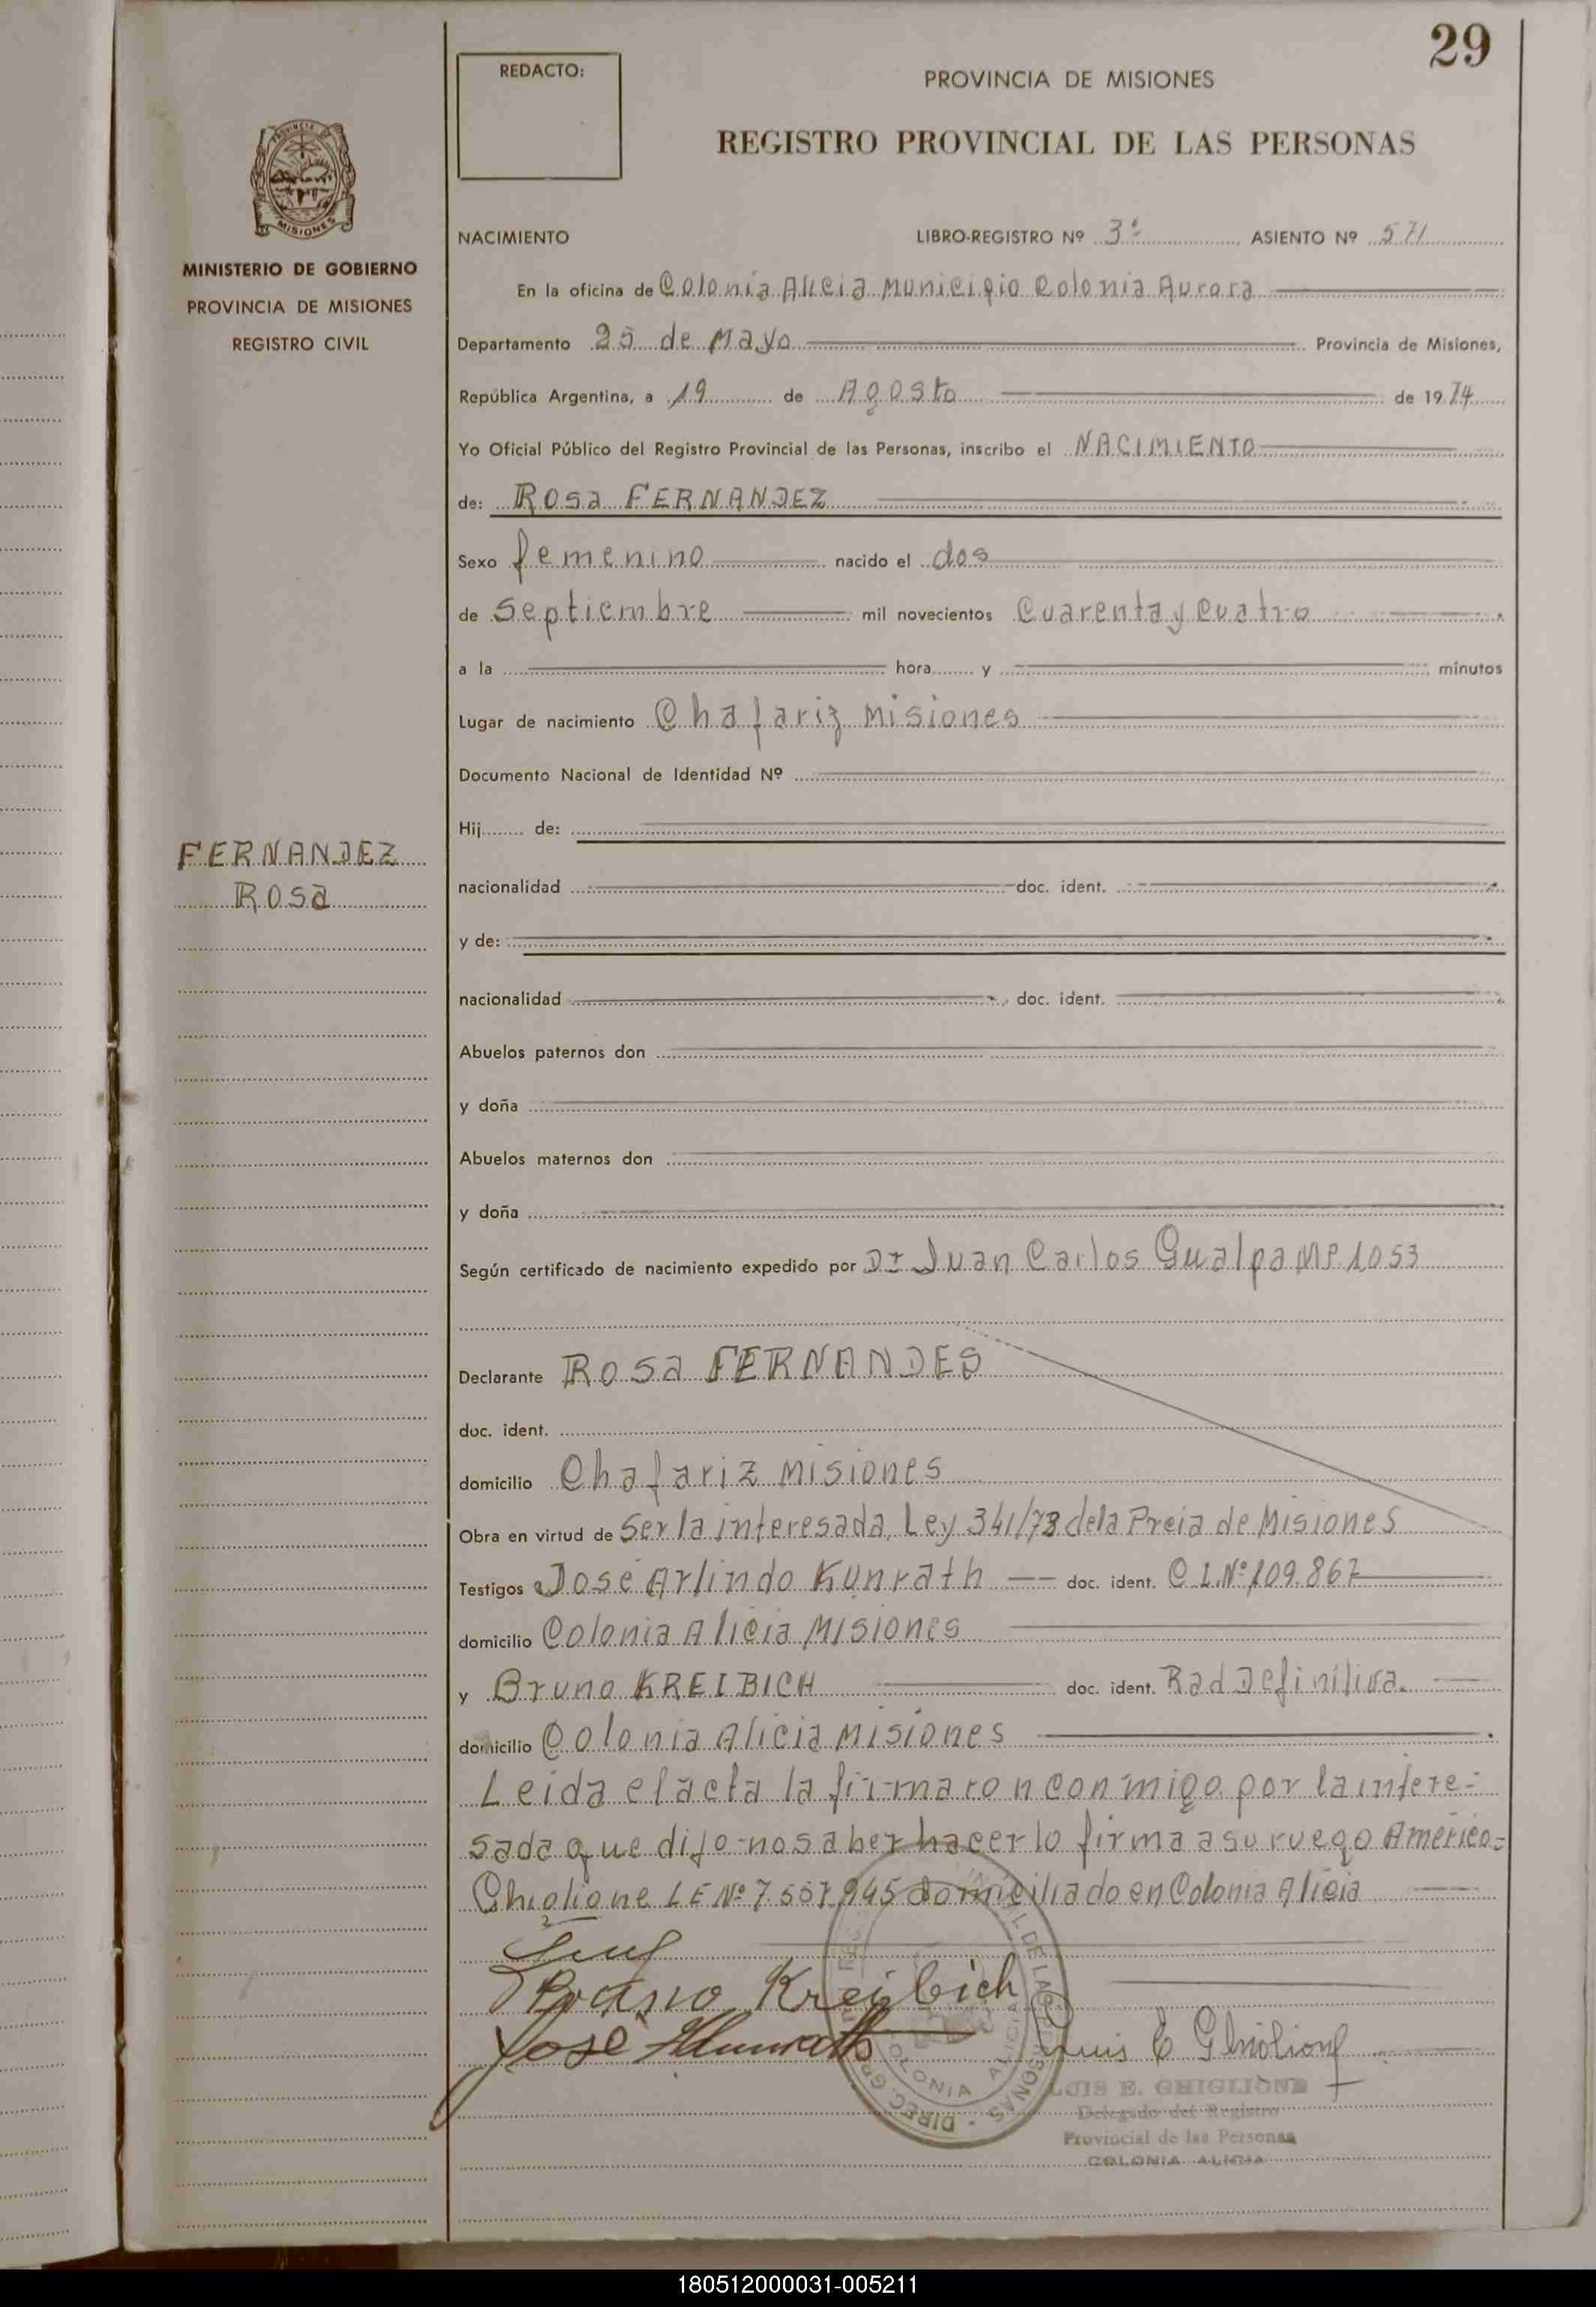 29
REDACTO:
PROVINCIA DE MISIONES
REGISTRO PROVINCIAL DE LAS PERSONAS
PROVINCIA DE
MISIONES
MINISTERIO DE GOBIERNO
PROVINCIA DE MISIONES
REGISTRO CIVIL
NACIMIENTO LIBRO-REGISTRO Nº 3º ASIENTO Nº 571
En la oficina de Colonia Alicia Municipio Colonia Aurora
Departamento 25 de Mayo Provincia de Misiones,
República Argentina, a 19 de Agosto de 1974
Yo Oficial Público del Registro Provincial de las Personas, inscribo el NACIMIENTO
de: Rosa FERNANDEZ
Sexo femenino nacido el dos
de Septiembre mil novecientos Cuarenta y Cuatro
a la hora y minutos
Lugar de nacimiento Chafariz Misiones
Documento Nacional de Identidad Nº
Hij de:
FERNANDEZ
Rosa
nacionalidad doc. ident.
y de:
nacionalidad doc. ident.
Abuelos paternos don
y doña
Abuelos maternos don
y doña
Según certificado de nacimiento expedido por Dr Juan Carlos Gualpa MP. 1053
Declarante Rosa FERNANDES
doc. ident.
domicilio Chafariz Misiones
Obra en virtud de Ser la interesada, Ley 341/73 dela Prcia de Misiones
Testigos José Arlindo Kunrath doc. ident. C I. Nº 109.867
domicilio Colonia Alicia Misiones
y Bruno KREIBICH doc. ident. Rad Definitiva.
domicilio Colonia Alicia Misiones
Leida el acta la firmaron conmigo, por la intere=
sada que dijo no saber hacerlo firma a su ruego Americo=
Ghiglione LE Nº 7.557.945 domiciliado en Colonia Alicia
Kreibich
José Kunrath
Luis E Ghiglione
LUIS E. GHIGLIONE
Delegado del Registro
Provincial de las Personas
COLONIA ALICIA
180512000031-005211